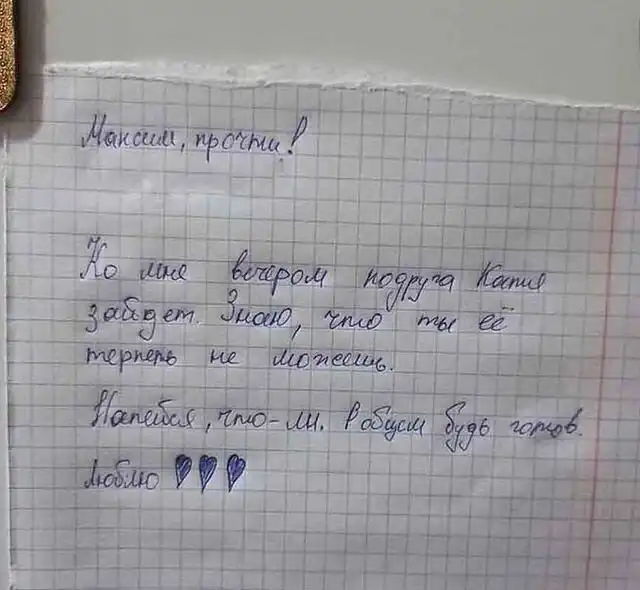 Максим, прочти!
Ко мне вечером подруга Катя
зайдет. Знаю, что ты её
терпеть не можешь.
Напейся, что-ли. В общем будь готов.
Люблю